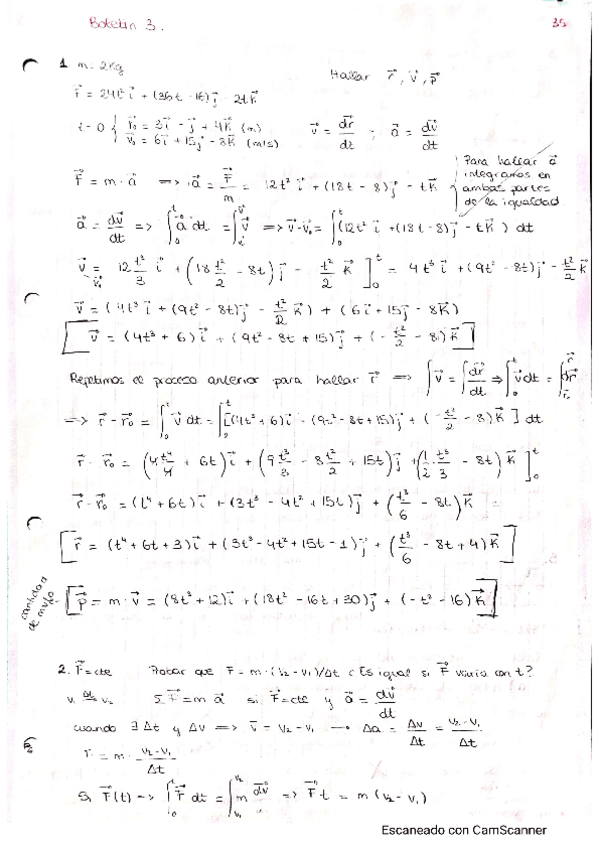 Boletín 3.
35
1 m. 2kg
Hallar r⃗, v⃗, p⃗
r⃗ = 24t² i⃗ + (36t - 16)j⃗ - 2t k⃗
t=0 { r⃗₀ = 3i⃗ - j⃗ + 4k⃗ (m)
v⃗₀ = 6i⃗ + 15j⃗ - 8k⃗ (m/s)
v⃗ = dr⃗/dt ; a⃗ = dv⃗/dt
F⃗ = m · a⃗ => a⃗ = F⃗/m = 12t² i⃗ + (18t - 8)j⃗ - t k⃗
Para hallar a⃗
integramos en
ambas partes
de la igualdad
a⃗ = dv⃗/dt => ∫₀ᵗ a⃗ dt = ∫ v⃗ => v⃗-v⃗₀ = ∫₀ᵗ (12t² i⃗ + (18t - 8)j⃗ - t k⃗) dt
v⃗ - v⃗₀ = 12 t³/3 i⃗ + (18 t²/2 - 8t) j⃗ - t²/2 k⃗ ]₀ᵗ = 4t³ i⃗ + (9t² - 8t)j⃗ - t²/2 k⃗
v⃗ = (4t³ i⃗ + (9t² - 8t)j⃗ - t²/2 k⃗) + (6i⃗ + 15j⃗ - 8k⃗)
[ v⃗ = (4t³ + 6) i⃗ + (9t² - 8t + 15)j⃗ + (- t²/2 - 8) k⃗ ]
Repetimos el proceso anterior para hallar r⃗ => ∫v⃗ = ∫dr⃗/dt => ∫₀ᵗ v⃗ dt = ∫dr⃗
=> r⃗ - r⃗₀ = ∫₀ᵗ v⃗ dt = ∫₀ᵗ [(4t³ + 6)i⃗ - (9t² - 8t + 15)j⃗ + (- t²/2 - 8) k⃗ ] dt
r⃗ - r⃗₀ = (4 t⁴/4 + 6t) i⃗ + (9 t³/3 - 8 t²/2 + 15t) j⃗ + (1/2 · t³/3 - 8t) k⃗ ]₀ᵗ
r⃗ - r⃗₀ = (t⁴ + 6t) i⃗ + (3t³ - 4t² + 15t)j⃗ + (t³/6 - 8t) k⃗
[ r⃗ = (t⁴ + 6t + 3) i⃗ + (3t³ - 4t² + 15t - 1)j⃗ + (t³/6 - 8t + 4) k⃗ ]
cantidad de mvto
[ p⃗ = m · v⃗ = (8t³ + 12) i⃗ + (18t² - 16t + 30)j⃗ + (- t² - 16) k⃗ ]
2. F⃗ = cte Probar que F = m · (v₂ - v₁)/Δt ¿Es igual si F⃗ varía con t?
v₁ Δt→ v₂ ΣF⃗ = m a⃗ si F⃗ = cte y a⃗ = dv⃗/dt
cuando ∃ Δt y Δv => v⃗ = v₂ - v₁ → Δa = Δv/Δt = v₂ - v₁/Δt
F = m · v₂ - v₁/Δt
Si F⃗(t) → ∫₀ᵗ F⃗ dt = ∫ᵥ₁ᵛ² m dv⃗ => F⃗ t = m (v₂ - v₁)
Escaneado con CamScanner